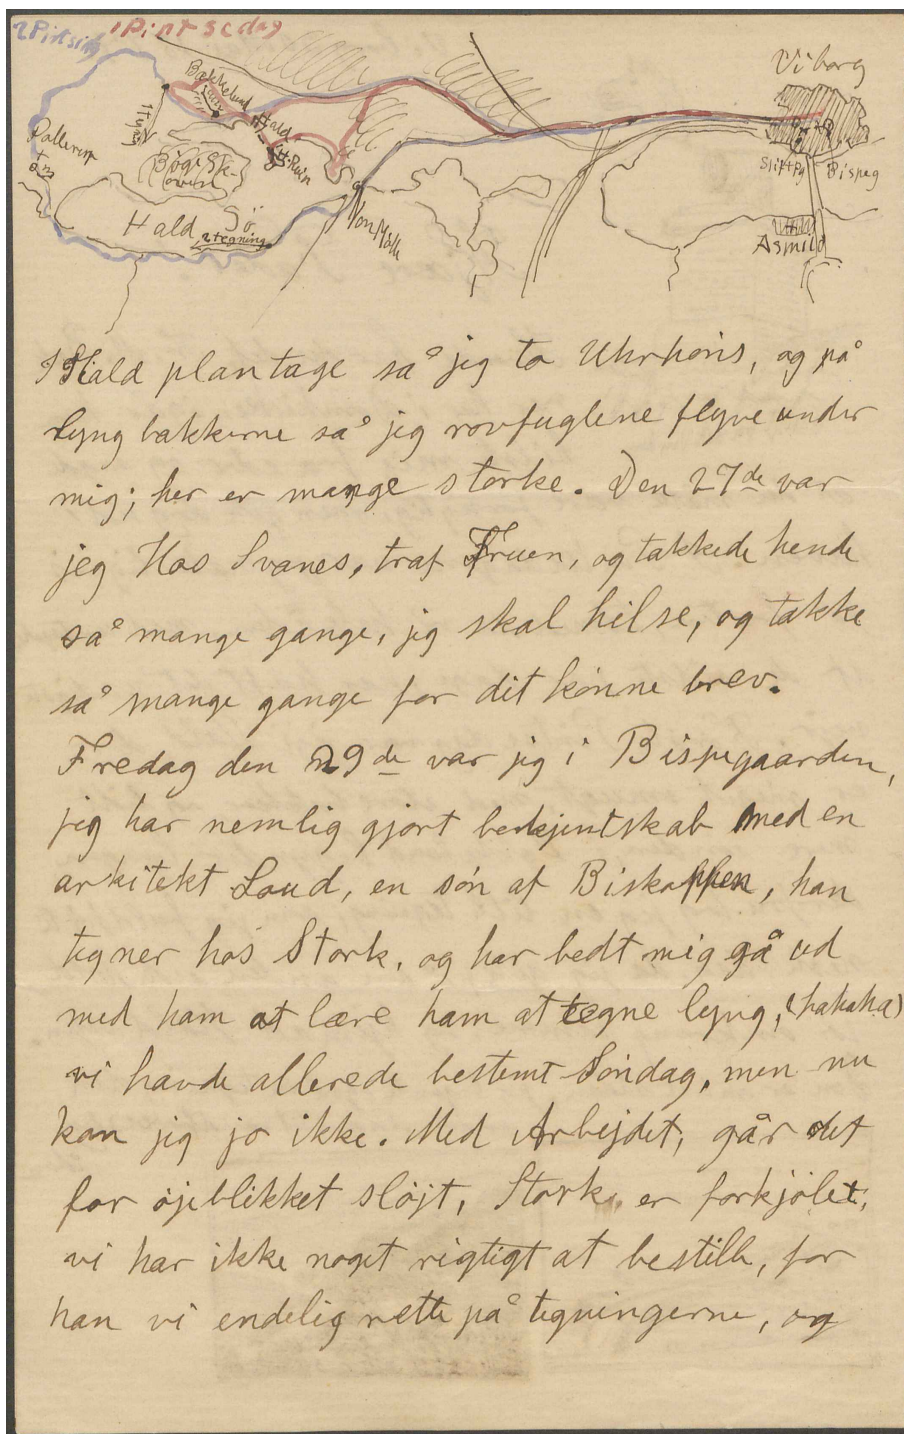 2 Pintsedag
1 Pintsedag
Viborg
Bækkelund
Hald
H. Ruin
Bøge Sk-
oven
Hald Sö
2 tegning
Non Mölle
Bispeg
Asmild
I Hald plantage så jeg to Uhrhöns, og på
Lyng bakkerne så jeg rovfuglene flyve under
mig; her er mange storke. Den 27de var
jeg Hos Svanes, traf Fruen, og takkede hende
så mange gange, jeg skal hilse, og takke
så mange gange for dit könne brev.
Fredag den 29de var jeg i Bispegaarden,
jeg har nemlig gjort bekjentskab med en
arkitekt Loud, en sön af Biskoppen, han
tegner hos Stork, og har bedt mig gå ud
med ham at lære ham at tegne lyng, (hahaha)
vi havde allerede bestemt Söndag, men nu
kan jeg jo ikke. Med Arbejdet, går det
for öjeblikket slöjt, Stork, er forkjölet,
vi har ikke noget rigtigt at bestille, for
han vi endelig rette på tegningerne, og